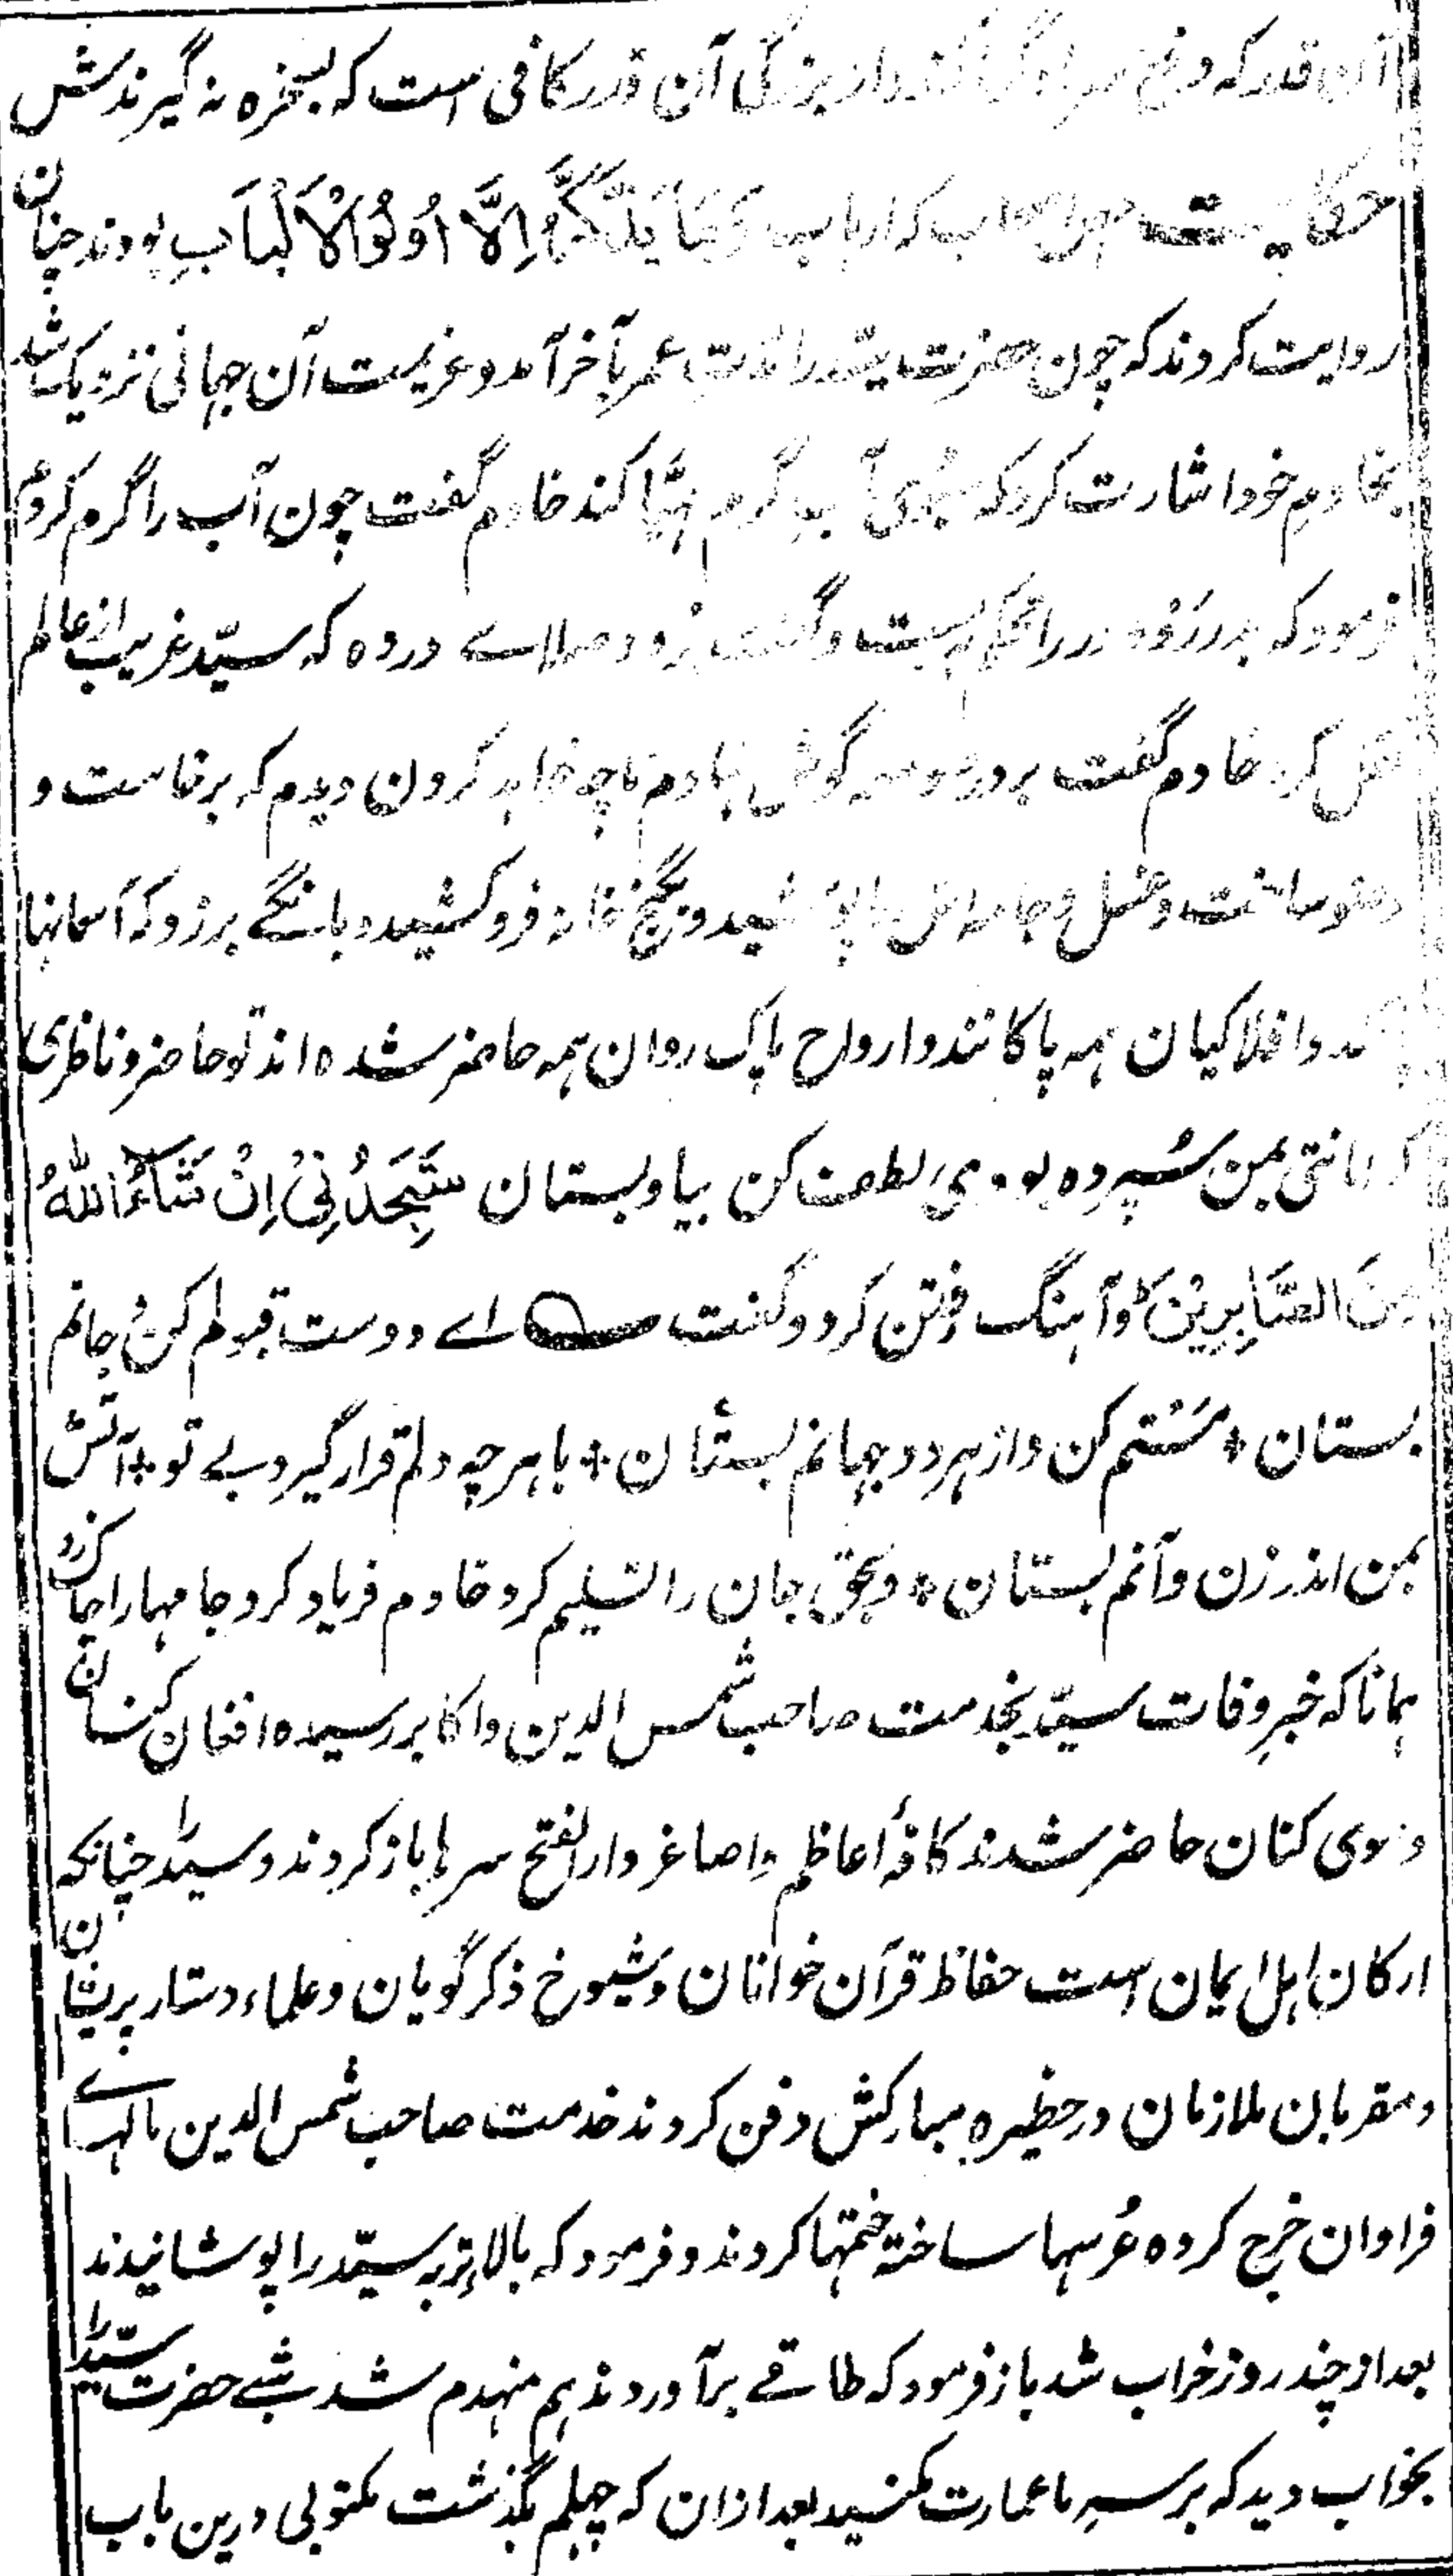 آن قدر که دنیا بزرگی آن قدر کافی است که بسخره نه گیرندش
حکایت اصحاب که ارباب وَمَا یَذَّکَّرُ اِلَّا اُولُو الْاَلْبَابِ بودند چنان
روایت کردند که چون حضرت سیّد را مدّتِ عمر بآخر آمد و عزیمت آن جهانی نزدیک شد
بخادمِ خود اشارت کرد که سُبوی آبِ گرم مہیّا کند خادم گفت چون آب را گرم کردم
فرمود که برو در را محکم بہ بست و گفت برو و صلاے درده که سیّد غریب از عالم
نقل کرد خادم گفت بر در گوش نہادم تا چه خواہد کردن دیدم که برخاست و
وضو ساخت و غسل و جامه پوشید و بکنج خانه فرو کشید و بانگے برزد که آسمانہا
و افلاکیان ہمه پاکانند و ارواح پاک روان ہمه حاضر شده اند تو حاضر و ناظری
امانتی بمن سُپرده بودی لطف کن بیا و بستان سَتَجِدُنِیْ اِنْ شَاءَ اللّٰهُ
مِنَ الصَّابِرِیْنَ و آہنگ رفتن کرد و گفت اے دوست قبولم کن و جانم
بستان * مَستم کن و از ہر دو جہانم بستان * با ہر چه دلم قرار گیرد بے تو * آتش
بمن اندر زن و آنم بستان * و بحق جان را تسلیم کرد خادم فریاد کرد و جامہا را چاک زد
ہمانا که خبرِ وفات سیّد بخدمت صاحب شمس الدین و اکابر رسیده افغان کنان
و موی کنان حاضر شدند کافۂ اعاظم و اصاغر دار الفتح سرہا باز کردند و سید را چنانکه
ارکان اہل ایمان است حفاظ قرآن خوانان و شیوخ ذکر گویان و علماء دستار پریشان
و مقربان ملازمان در حظیره مبارکش دفن کردند خدمت صاحب شمس الدین مالہاے
فراوان خرج کرده عُرسہا ساخته ختمہا کردند و فرمود که بالاِ تربه سیّد را پوشانیدند
بعد از چند روز خراب شد باز فرمود که طاقے برآوردند ہم منہدم شد شبے حضرت سیّد را
بخواب دید که بر سرِ ما عمارت مکنید بعد ازان که چہلم بگذشت مکتوبی درین باب